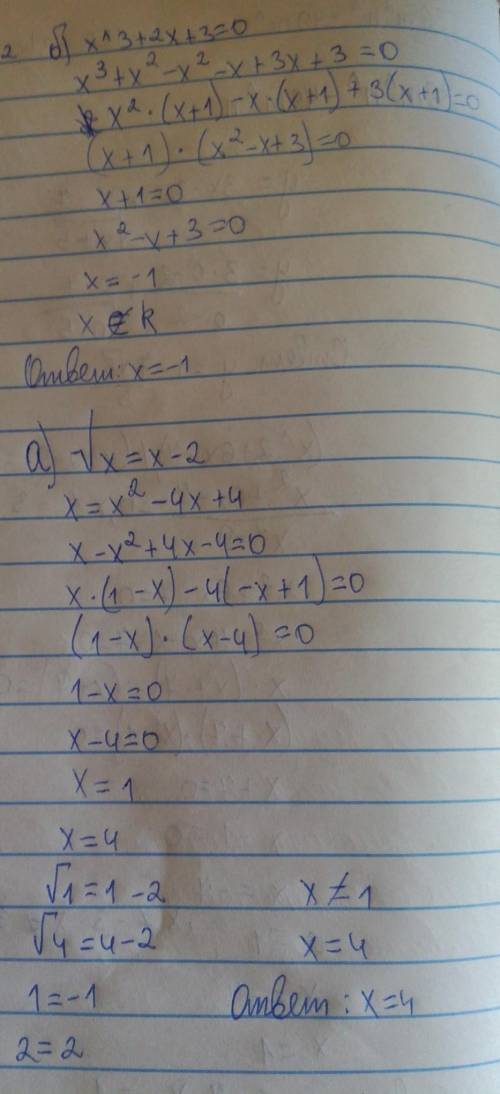 2 б) x^3+2x+3=0
x³+x²-x²-x+3x+3=0
x²·(x+1)-x·(x+1)+3(x+1)=0
(x+1)·(x²-x+3)=0
x+1=0
x²-x+3=0
x=-1
x∉R
Ответ: x=-1
а) √x=x-2
x=x²-4x+4
x-x²+4x-4=0
x·(1-x)-4(-x+1)=0
(1-x)·(x-4)=0
1-x=0
x-4=0
x=1
x=4
√1=1-2 x≠1
√4=4-2 x=4
1=-1 Ответ: x=4
2=2